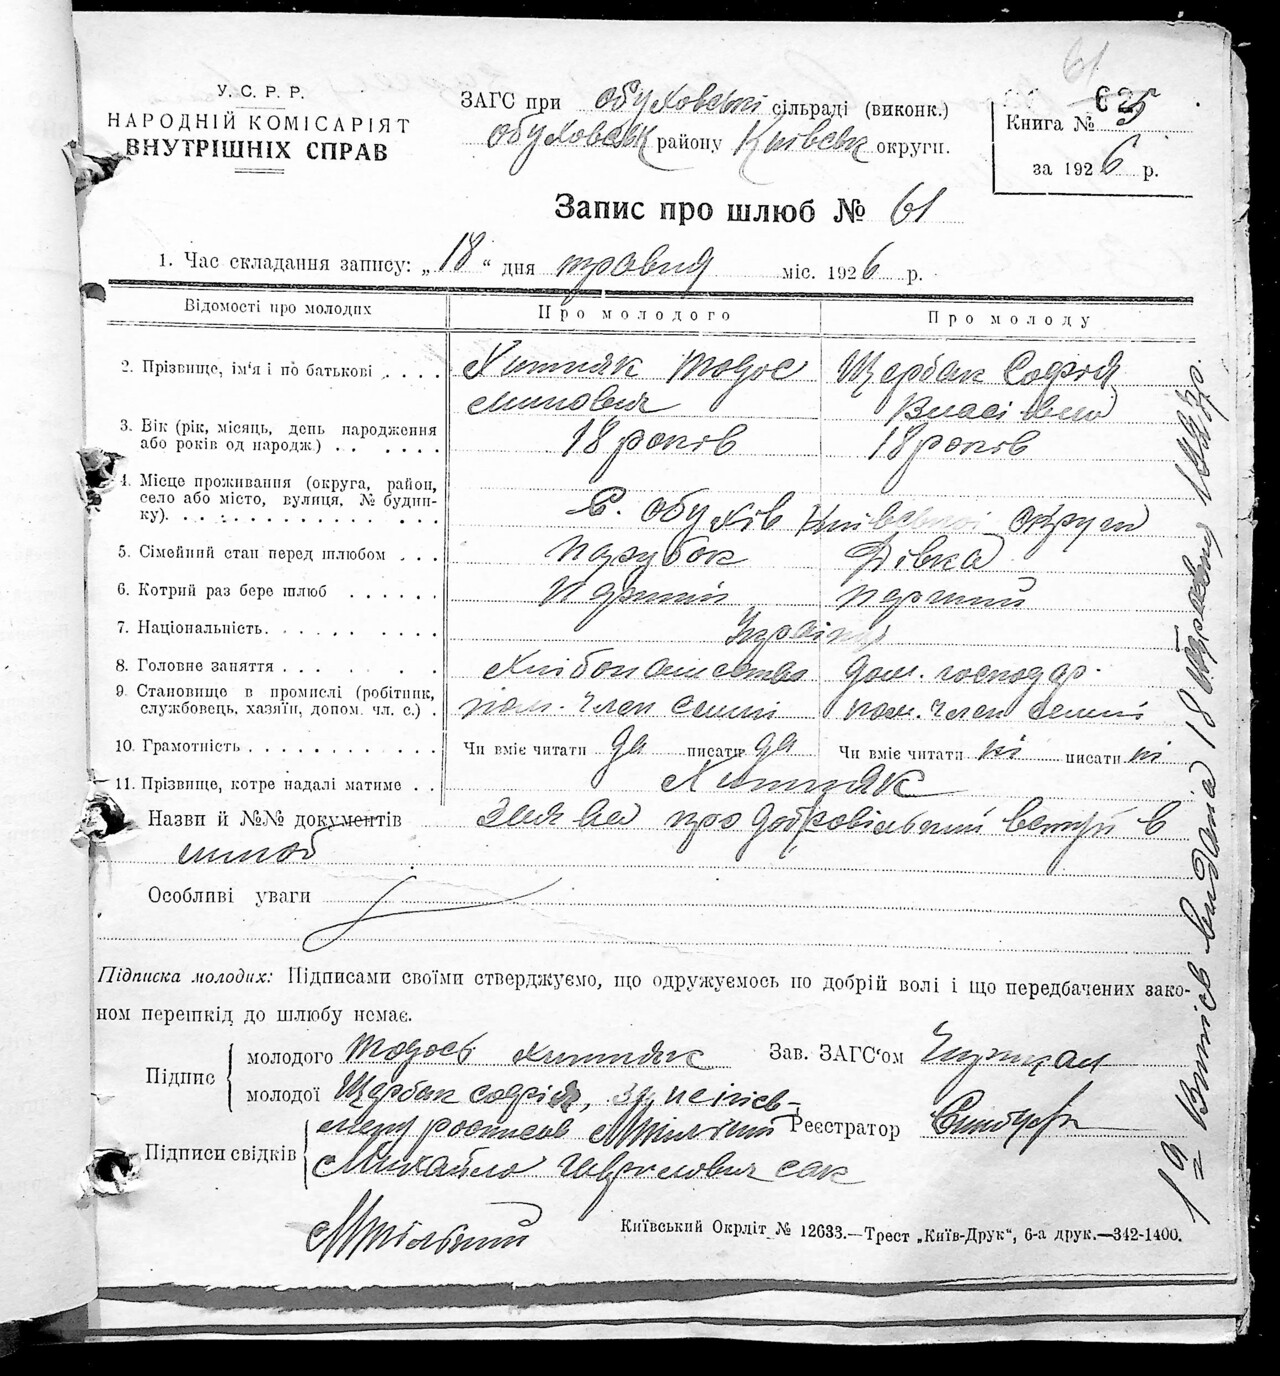 У. С. Р. Р.
НАРОДНІЙ КОМІСАРІЯТ
ВНУТРІШНІХ СПРАВ
ЗАГС при Обуховські сільраді (виконк.)
Обуховськ району Київськ округи.
61
Книга № 5
за 1926 р.
Запис про шлюб № 61
1. Час складання запису: „18“ дня травня міс. 1926 р.
Відомості про молодих Про молодого Про молоду
2. Прізвище, ім'я і по батькові . . . . Хитняк Тодос Щербак Софія
Власівна
3. Вік (рік, місяць, день народження
або років од народж.) . . . . . . 18 років 18 років
4. Місце проживання (округа, район,
село або місто, вулиця, № будин-
ку). с. Обухів Київської округи
5. Сімейний стан перед шлюбом . . . парубок Дівка
6. Котрий раз бере шлюб . . . . . . Перший перший
7. Національність. Україн
8. Головне заняття Хлібопашество дом. господар.
9. Становище в промислі (робітник,
службовець, хазяїн, допом. чл. с.) . пом. член семиї пом. член семиї
10. Грамотність Чи вміє читати да писати да Чи вміє читати ні писати ні
11. Прізвище, котре надалі матиме . . Хитняк
Назви й №№ документів заява про добровільний вступ в
шлюб
Особливі уваги
Підписка молодих: Підписами своїми стверджуємо, що одружуємось по добрій волі і що передбачених зако-
ном перешкід до шлюбу немає.
Підпис
молодого Тодось Хитняк Зав. ЗАГС'ом
молодої Щербак Софія, за неписьм-
Реєстратор
Підписи свідків Михайло сак
Київський Окрліт № 12633.—Трест „Київ-Друк“, 6-а друк.—342-1400.
видана 18 травня